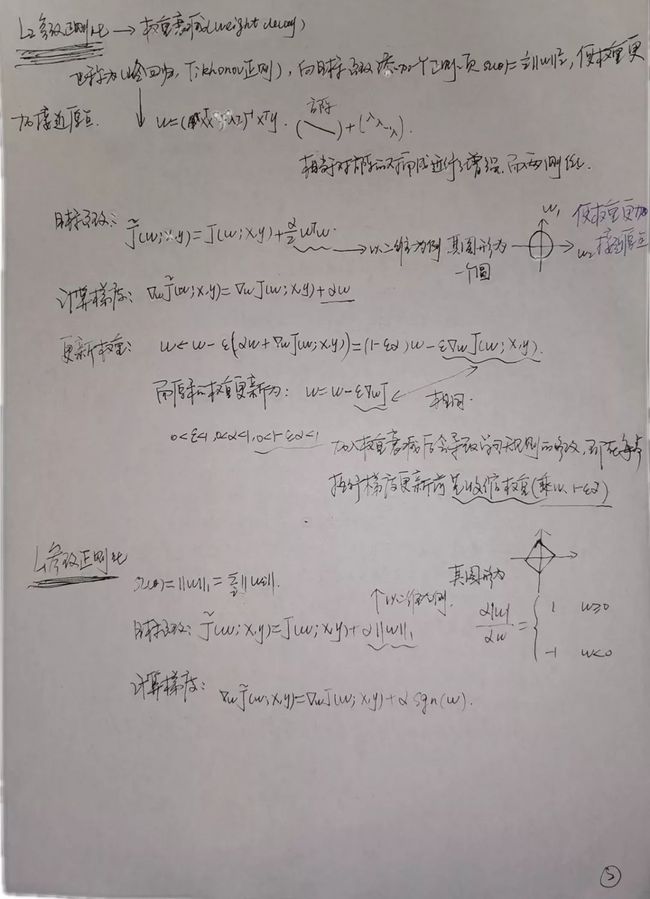 L₂参数正则化 → 权重衰减(weight decay)
也称为岭回归, Tikhonov正则), 向目标函数添加一个正则项 Ω(θ)=½||w||₂², 使权重更
加接近原点. ↓ w=(XᵀX+λI)⁻¹Xᵀy.
目标函数: J̃(w;X,y)=J(w;X,y)+α/2 wᵀw. → 以二维为例 其图形为一个圆 w₁ w₂ 使权重更加接近原点
计算梯度: ∇wJ̃(w;X,y)=∇wJ(w;X,y)+αw
更新权重: w←w-ε(αw+∇wJ(w;X,y))=(1-εα)w-ε∇wJ(w;X,y).
而原来权重更新为: w=w-ε∇wJ 相同.
0<ε<1, 0<α<1, 0<1-εα<1
加入权重衰减后会导致学习规则的修改, 即在每步
执行梯度更新前先收缩权重(乘以 1-εα)
L₁参数正则化
Ω(θ)=||w||₁=Σ||wi||. 其图形为
↑以二维为例.
目标函数: J̃(w;X,y)=J(w;X,y)+α||w||₁ d|w|/dw = { 1 w≥0
-1 w<0
计算梯度: ∇wJ̃(w;X,y)=∇wJ(w;X,y)+α sgn(w).